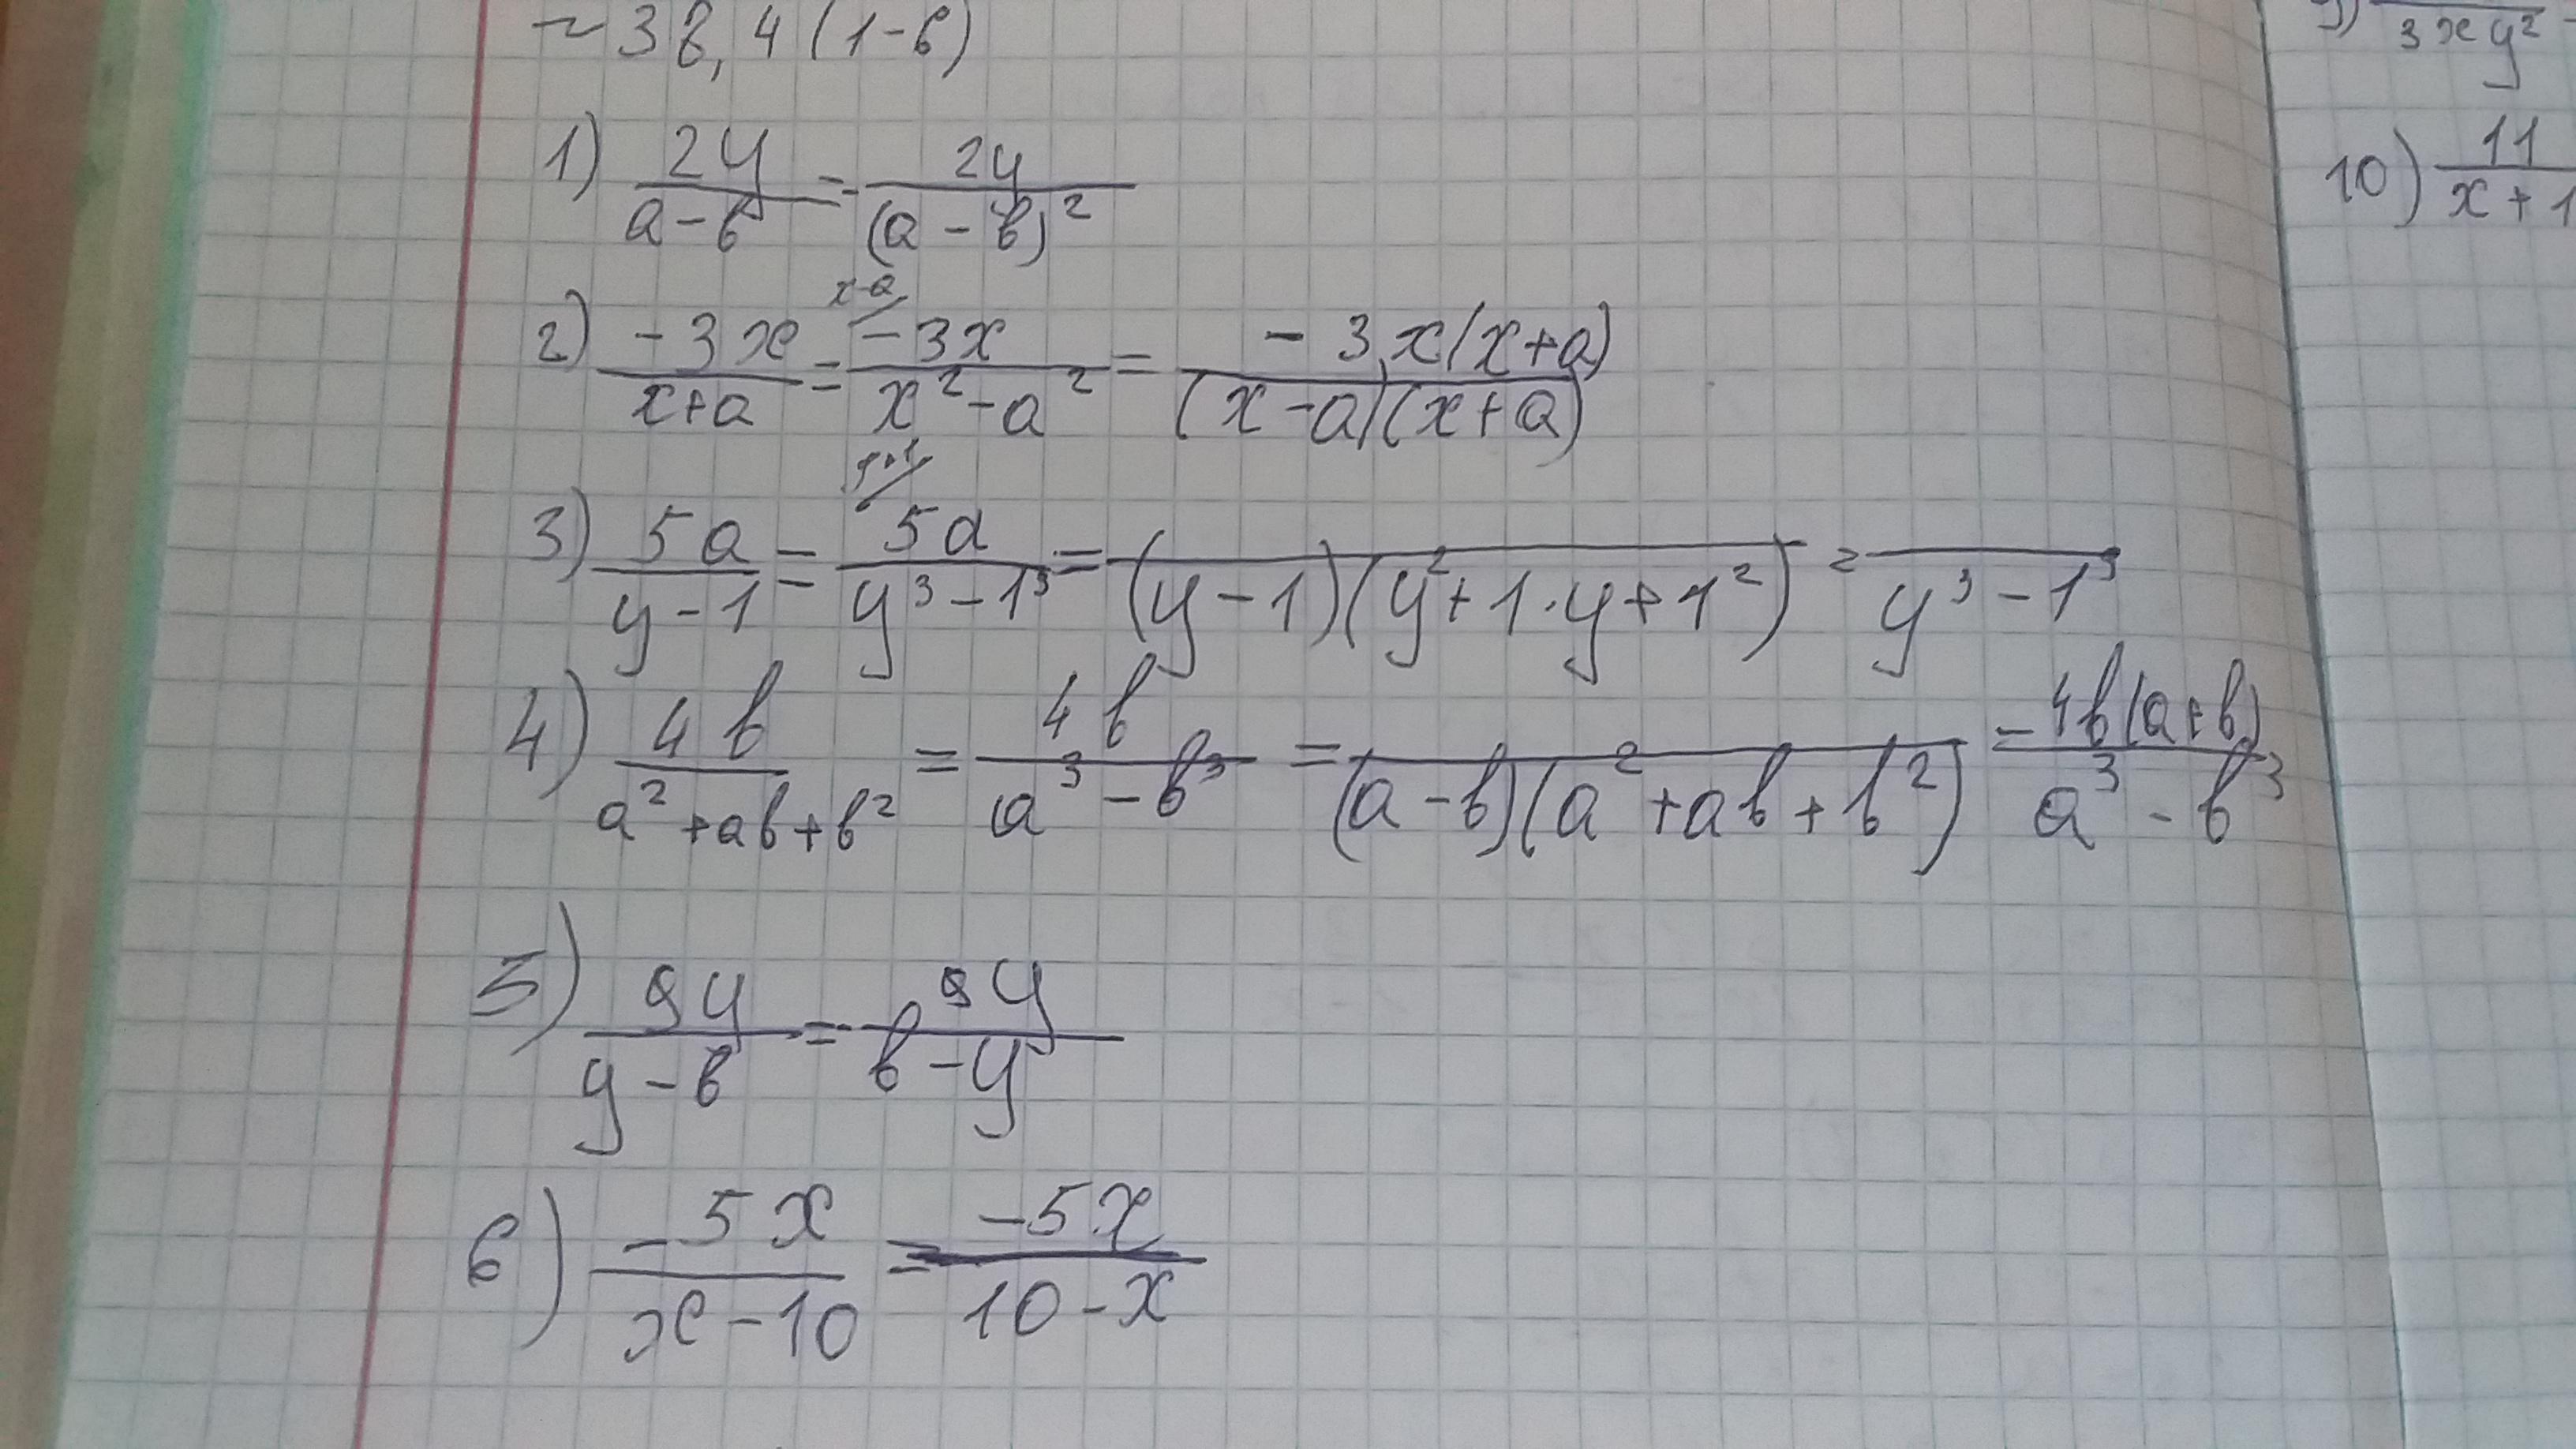 ~ 38, 4 (1-в)
1) 2y/(a-в) = 2y/(a-в)²
2) -3x/(x+a) = x-a/ -3x/(x²-a²) = -3x(x+a)/((x-a)(x+a))
3) 5a/(y-1) = 5a/(y³-1³) = /((y-1)(y²+1·y+1²)) = /(y³-1³)
4) 4b/(a²+ab+b²) = 4b/(a³-b³) = /((a-b)(a²+ab+b²)) = 4b(a+b)/(a³-b³)
5) 9y/(y-в) = 9y/(в-y)
6) -5x/(x-10) = -5x/(10-x)
9) /(3xy²)
10) 11/(x+1